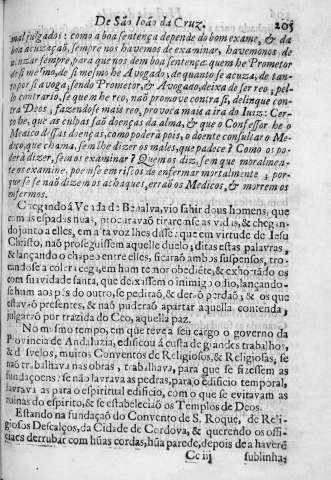 De São Ioão da Cruz. 205
mal julgados: como a boa sentença depende do bom exame, & da
boa acuzação, sempre nos havemos de examinar, havemonos de
acuzar sempre, para que nos dem boa sentença: quem he Prometor
de si mesmo, de si mesmo he Avogado; de quanto se acuza, de tan-
to por si avoga, sendo Prometor, & Avogado, deixa de ser reo; pel-
lo contrario, se quem he reo, naõ promove contra si, delinque con-
tra Deos, fazendose mais reo, provoca mais a ira do Iuiz: Cer-
to he, que as culpas saõ doenças da alma, & que o Confessor he o
Medico dessas doenças, como poderá pois, o doente consultar o Me-
dico, que chama, sem lhe dizer os males, que padece? Como os po-
derá dizer, sem os examinar? Quem os diz, sem que moralmen-
te os examine, poemse em riscos de enfermar mortalmente; por-
que se se naõ dizem os achaques, erraõ os Medicos, & morrem os
enfermos.
Chegando á Venda de Benalva, vio sahir dous homens, que
com as espadas nuas, procuravaõ tirarense as vidas, & chegan-
dojunto a elles, em alta voz lhes disse: que em virtude de Iesu
Christo, naõ proseguissem aquelle duelo; ditas estas palavras,
& lançando o chapeo entre elles, ficaraõ ambos suspensos, tro-
candose a colera cega, em humter nor obediéte, & exhortádo os
com suavidade santa, que deixassem o inimigo odio, lançando-
se hum aos pés do outro, se pediraõ, & deraõ perdaõ; & os que
estavaõ presentes, & naõ puderaõ apartar aquella contenda,
julgaraõ por trazida do Ceo, aquella paz.
No mesmo tempo, em que teve a seu cargo o governo da
Provincia de Andaluzia, edificou á custa de grandes trabalhos,
& desvelos, muitos Conventos de Religiosos, & Religiosas, se
naõ trabalhava nas obras, trabalhava, para que se fizessem as
fundaçoens: se naõ lavrava as pedras, para o edificio temporal,
lavrava as para o espiritual edificio, com o que se evitavam as
ruinas do espirito, & se estabeleciaõ os Templos de Deos.
Estando na fundaçaõ do Convento de S. Roque, de Reli-
giosos Descalços, da Cidade de Cordova, & querendo os offi-
ciaes derrubar com húas cordas, húa parede, depois de a haveré
Cc iij sublinha;